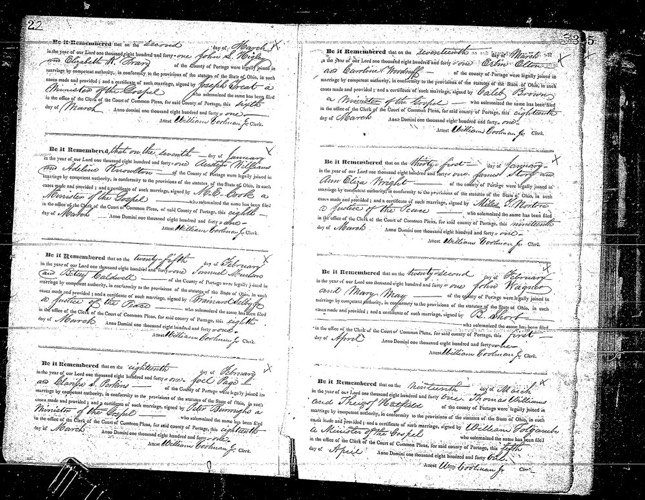 22
Be it Remembered that on the second day of March X
in the year of our Lord one thousand eight hundred and forty-one John
and Elizabeth of the County of Portage were legally joined in
marriage by competent authority, in conformity to the provisions of the statutes of the State of Ohio, in such
cases made and provided; and a certificate of such marriage, signed by Joseph a
Minister of the Gospel who solemnized the same has been filed
in the office of the Clerk of the Court of Common Pleas, for said County of Portage, this eighth
day of March Anno Domini one thousand eight hundred and forty-one
Attest William Coolman Jr Clerk.
Be it Remembered that on the seventh day of January X
in the year of our Lord one thousand eight hundred and forty-one Austin Williams
and Adeline Knowlton of the County of Portage were legally joined in
marriage by competent authority, in conformity to the provisions of the statutes of the State of Ohio, in such
cases made and provided; and a certificate of such marriage, signed by Cook a
Minister of the Gospel who solemnized the same has been filed
in the office of the Clerk of the Court of Common Pleas, for said County of Portage, this eighth
day of March Anno Domini one thousand eight hundred and forty-one
Attest William Coolman Jr Clerk.
Be it Remembered that on the twenty-fifth day of February X
in the year of our Lord one thousand eight hundred and forty-one Samuel
and Betsy Caldwell of the County of Portage were legally joined in
marriage by competent authority, in conformity to the provisions of the statutes of the State of Ohio, in such
cases made and provided; and a certificate of such marriage, signed by Brainard Selby
a Justice of the Peace who solemnized the same has been filed
in the office of the Clerk of the Court of Common Pleas, for said County of Portage, this eighth
day of March Anno Domini one thousand eight hundred and forty-one
Attest William Coolman Jr Clerk.
Be it Remembered that on the eighteenth day of February X
in the year of our Lord one thousand eight hundred and forty-one Joel Page
and S. Perkins of the County of Portage were legally joined in
marriage by competent authority, in conformity to the provisions of the statutes of the State of Ohio, in such
cases made and provided; and a certificate of such marriage, signed by Peter Burroughs a
Minister of the Gospel who solemnized the same has been filed
in the office of the Clerk of the Court of Common Pleas, for said County of Portage, this eighteenth
day of March Anno Domini one thousand eight hundred and forty-one
Attest William Coolman Jr Clerk.
Be it Remembered that on the seventeenth day of March X
in the year of our Lord one thousand eight hundred and forty-one
and Caroline Woodruff of the County of Portage were legally joined in
marriage by competent authority, in conformity to the provisions of the statutes of the State of Ohio, in such
cases made and provided; and a certificate of such marriage, signed by Caleb Brown
a Minister of the Gospel who solemnized the same has been filed
in the office of the Clerk of the Court of Common Pleas, for said County of Portage, this eighteenth
day of March Anno Domini one thousand eight hundred and forty-one
Attest William Coolman Jr Clerk.
Be it Remembered that on the thirty-first day of January X
in the year of our Lord one thousand eight hundred and forty-one James Story and
Ann Eliza Wright of the County of Portage were legally joined in
marriage by competent authority, in conformity to the provisions of the statutes of the State of Ohio, in such
cases made and provided; and a certificate of such marriage, signed by Miles T. Norton
a Justice of the Peace who solemnized the same has been filed
in the office of the Clerk of the Court of Common Pleas, for said County of Portage, this nineteenth
day of March Anno Domini one thousand eight hundred and forty-one
Attest William Coolman Jr Clerk.
Be it Remembered that on the twenty-second day of February X
in the year of our Lord one thousand eight hundred and forty-one John Wagner
and Mary May of the County of Portage were legally joined in
marriage by competent authority, in conformity to the provisions of the statutes of the State of Ohio, in such
cases made and provided; and a certificate of such marriage, signed by
who solemnized the same has been filed
in the office of the Clerk of the Court of Common Pleas, for said County of Portage, this first
day of April Anno Domini one thousand eight hundred and forty-one
Attest William Coolman Jr Clerk.
Be it Remembered that on the nineteenth day of March X
in the year of our Lord one thousand eight hundred and forty-one Thomas Williams
and of the County of Portage were legally joined in
marriage by competent authority, in conformity to the provisions of the statutes of the State of Ohio, in such
cases made and provided; and a certificate of such marriage, signed by William
a Minister of the Gospel who solemnized the same has been filed
in the office of the Clerk of the Court of Common Pleas, for said County of Portage, this fifth
day of April Anno Domini one thousand eight hundred and forty-one
Attest Wm Coolman Jr Clerk.